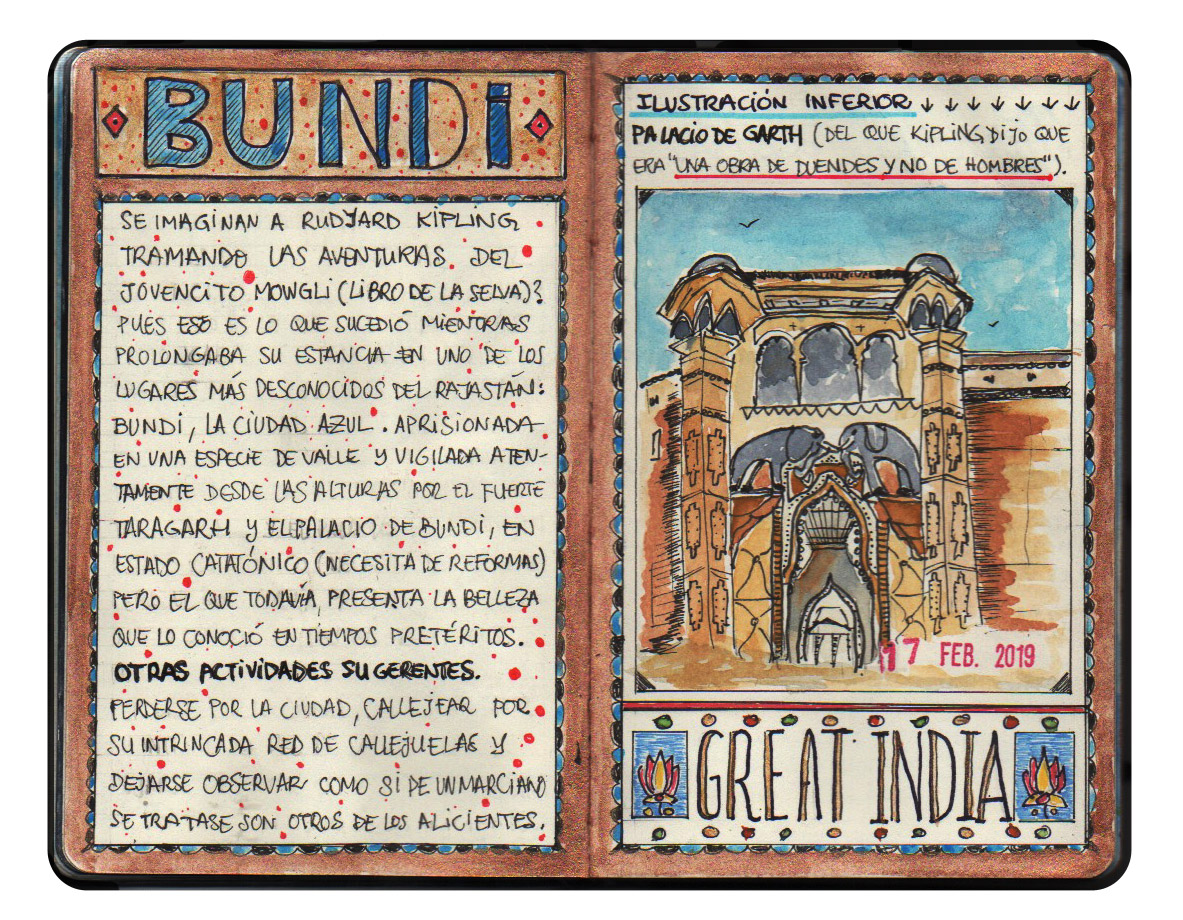 BUNDI
SE IMAGINAN A RUDYARD KIPLING
TRAMANDO LAS AVENTURAS DEL
JOVENCITO MOWGLI (LIBRO DE LA SELVA)?
PUES ESO ES LO QUE SUCEDIÓ MIENTRAS
PROLONGABA SU ESTANCIA EN UNO DE LOS
LUGARES MÁS DESCONOCIDOS DEL RAJASTÁN:
BUNDI, LA CIUDAD AZUL. APRISIONADA
EN UNA ESPECIE DE VALLE Y VIGILADA ATEN-
TAMENTE DESDE LAS ALTURAS POR EL FUERTE
TARAGARH Y EL PALACIO DE BUNDI, EN
ESTADO CATATÓNICO (NECESITA DE REFORMAS)
PERO EL QUE TODAVÍA, PRESENTA LA BELLEZA
QUE LO CONOCIÓ EN TIEMPOS PRETÉRITOS.
OTRAS ACTIVIDADES SUGERENTES.
PERDERSE POR LA CIUDAD, CALLEJEAR POR
SU INTRINCADA RED DE CALLEJUELAS Y
DEJARSE OBSERVAR COMO SI DE UN MARCIANO
SE TRATASE SON OTROS DE LOS ALICIENTES.
ILUSTRACIÓN INFERIOR ↓ ↓ ↓ ↓ ↓ ↓ ↓
PALACIO DE GARTH (DEL QUE KIPLING DIJO QUE
ERA "UNA OBRA DE DUENDES Y NO DE HOMBRES").
17 FEB. 2019
GREAT INDIA